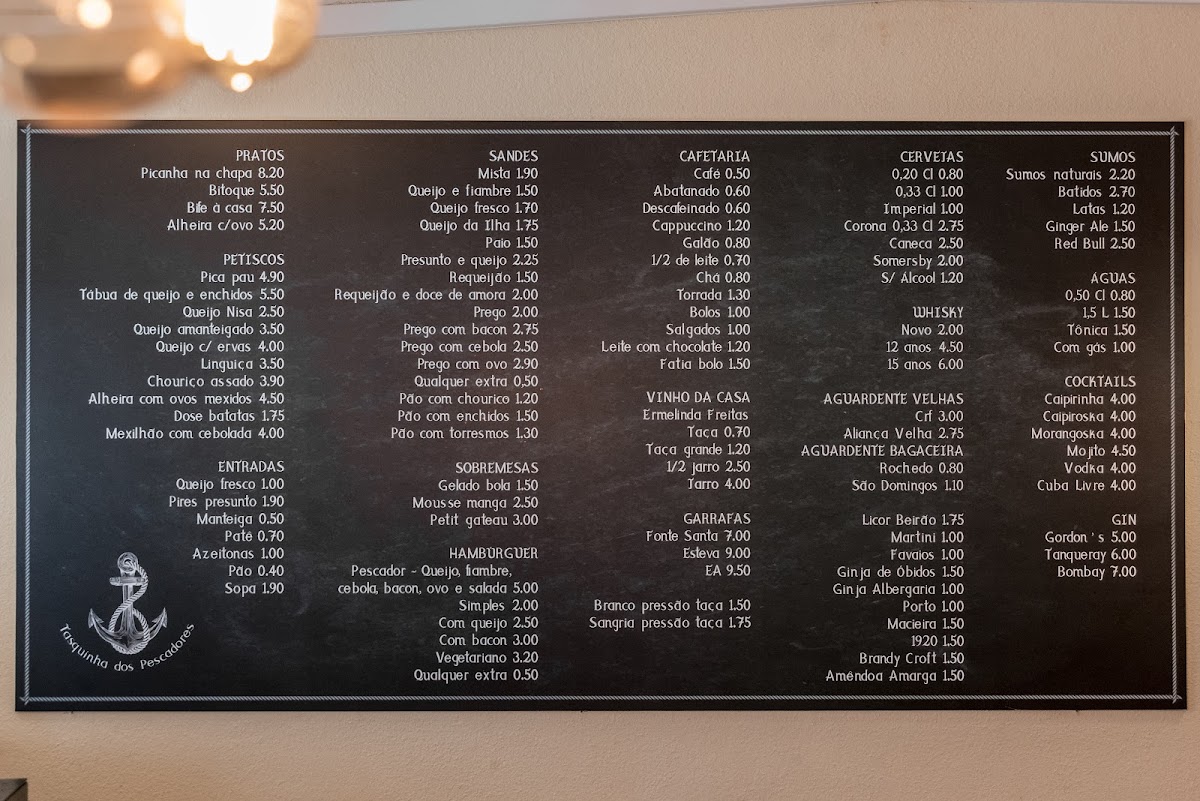 PRATOS
Picanha na chapa 8.20
Bitoque 5.50
Bife à casa 7.50
Alheira c/ovo 5.20
PETISCOS
Pica pau 4.90
Tábua de queijo e enchidos 5.50
Queijo Nisa 2.50
Queijo amanteigado 3.50
Queijo c/ ervas 4.00
Linguiça 3.50
Chouriço assado 3.90
Alheira com ovos mexidos 4.50
Dose batatas 1.75
Mexilhão com cebolada 4.00
ENTRADAS
Queijo fresco 1.00
Pires presunto 1.90
Manteiga 0.50
Patê 0.70
Azeitonas 1.00
Pão 0.40
Sopa 1.90
Tasquinha dos Pescadores
SANDES
Mista 1.90
Queijo e fiambre 1.50
Queijo fresco 1.70
Queijo da Ilha 1.75
Paio 1.50
Presunto e queijo 2.25
Requeijão 1.50
Requeijão e doce de amora 2.00
Prego 2.00
Prego com bacon 2.75
Prego com cebola 2.50
Prego com ovo 2.90
Qualquer extra 0,50
Pão com chouriço 1.20
Pão com enchidos 1.50
Pão com torresmos 1.30
SOBREMESAS
Gelado bola 1.50
Mousse manga 2.50
Petit gateau 3.00
HAMBURGUER
Pescador - Queijo, fiambre,
cebola, bacon, ovo e salada 5.00
Simples 2.00
Com queijo 2.50
Com bacon 3.00
Vegetariano 3.20
Qualquer extra 0.50
CAFETARIA
Café 0.50
Abatanado 0.60
Descafeinado 0.60
Cappuccino 1.20
Galão 0.80
1/2 de leite 0.70
Chá 0.80
Torrada 1.30
Bolos 1.00
Salgados 1.00
Leite com chocolate 1.20
Fatia bolo 1.50
VINHO DA CASA
Ermelinda Freitas
Taça 0.70
Taça grande 1.20
1/2 jarro 2.50
Jarro 4.00
GARRAFAS
Fonte Santa 7.00
Esteva 9.00
EA 9.50
Branco pressão taça 1.50
Sangria pressão taça 1.75
CERVEJAS
0,20 Cl 0.80
0,33 Cl 1.00
Imperial 1.00
Corona 0,33 Cl 2.75
Caneca 2.50
Somersby 2.00
S/ Álcool 1.20
WHISKY
Novo 2.00
12 anos 4.50
15 anos 6.00
AGUARDENTE VELHAS
Crf 3.00
Aliança Velha 2.75
AGUARDENTE BAGACEIRA
Rochedo 0.80
São Domingos 1.10
Licor Beirão 1.75
Martini 1.00
Favaios 1.00
Ginja de Óbidos 1.50
Ginja Albergaria 1.00
Porto 1.00
Macieira 1.50
1920 1.50
Brandy Croft 1.50
Amêndoa Amarga 1.50
SUMOS
Sumos naturais 2.20
Batidos 2.70
Latas 1.20
Ginger Ale 1.50
Red Bull 2.50
ÁGUAS
0,50 Cl 0.80
1,5 L 1.50
Tônica 1.50
Com gás 1.00
COCKTAILS
Caipirinha 4.00
Caipiroska 4.00
Morangoska 4.00
Mojito 4.50
Vodka 4.00
Cuba Livre 4.00
GIN
Gordon's 5.00
Tanqueray 6.00
Bombay 7.00